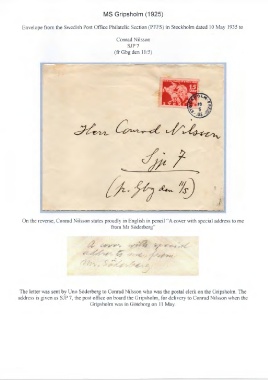 MS Gripsholm (1925)
Envelope from the Swedish Post Office Philatelic Section (PFFS) in Stockholm dated 10 May 1935 to
Conrad Nilsson
SJP 7
(fr Gbg den 11/5)
Herr Conrad Nilsson
Sjp 7
(fr. Gbg den 11/5)
On the reverse, Conrad Nilsson states proudly in English in pencil "A answer with special address to me
from Mr Söderberg"
A answer with special
address to me from
Mr. Söderberg
The letter was sent by Uno Söderberg to Conrad Nilsson who was the postal clerk on the Gripsholm. The
address is given as SJP 7, the post office on board the Gripsholm, for delivery to Conrad Nilsson when the
Gripsholm was in Göteborg on 11 May.